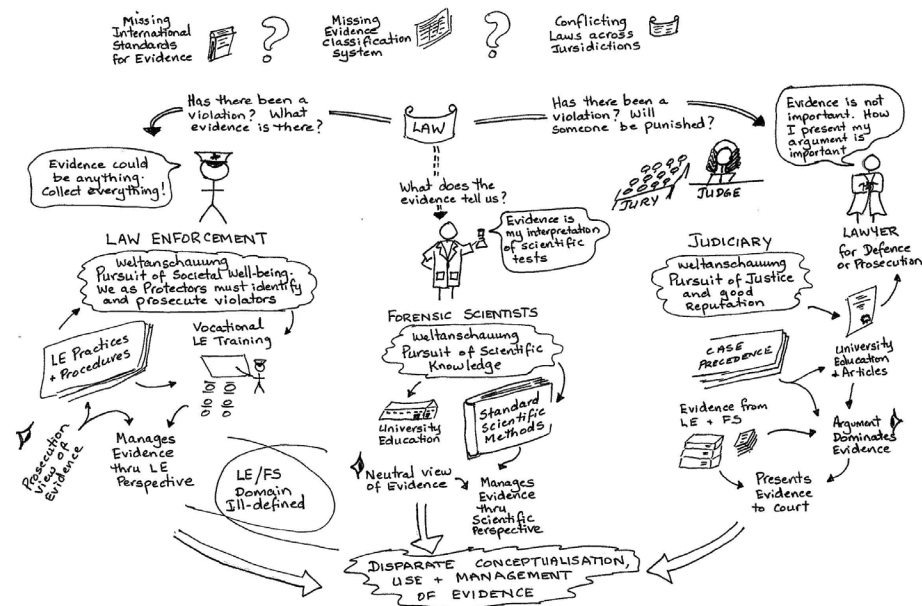 Missing
International
Standards
for Evidence
?
Missing
Evidence
classification
system
?
Conflicting
Laws across
Jursidictions
Has there been a
violation? What
evidence is there?
LAW
Has there been a
violation? Will
someone be punished?
Evidence is not
important. How
I present my
argument is
important
Evidence could
be anything.
Collect everything!
What does the
evidence tell us?
JURY
JUDGE
Evidence is
my interpretation
of scientific
tests
LAW ENFORCEMENT
Weltanschauung
Pursuit of Societal Well-being.
We as Protectors must identify
and prosecute violators
LE Practices
+ Procedures
Vocational
LE Training
Prosecution
view of
Evidence
Manages
Evidence
thru LE
Perspective
LE/FS
Domain
Ill-defined
FORENSIC SCIENTISTS
Weltanschauung
Pursuit of Scientific
Knowledge
University
Education
Standard
Scientific
Methods
Neutral view
of Evidence
Manages
Evidence
thru
Scientific
Perspective
JUDICIARY
Weltanschauung
Pursuit of Justice
and good
Reputation
LAWYER
for Defence
or Prosecution
CASE
PRECEDENCE
University
Education
+ Articles
Evidence from
LE + FS
Argument
Dominates
Evidence
Presents
Evidence
to Court
DISPARATE CONCEPTUALISATION,
USE + MANAGEMENT
OF EVIDENCE